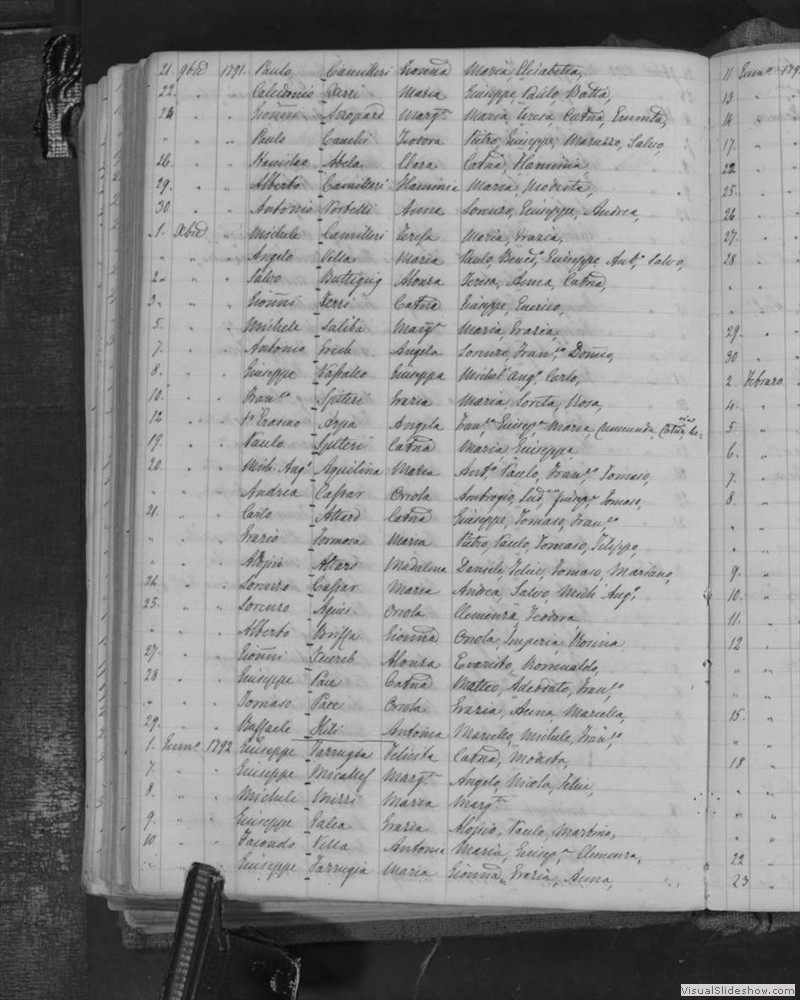 21. 9brẽ 1791. Paulo Camilleri Gionna Maria, Elisabetta,
22. " " Calcidonio Ferri Maria Giuseppe, Paulo, Batta,
24 " " Gionni Azopard Marg.ta Maria, Teresa, Catna,
" " " Paulo Cauchi Teodora Pietro, Giuseppe, Maruzzo, Salvo,
26. " " Stanislao Abela Clara Catna, Flaminia,
29. " " Alberto Camilleri Flaminia Maria, Modesta,
30 " " Antonio Portelli Anna Lorenzo, Giuseppe, Andrea,
1. Xbrẽ " Michele Camilleri Teresa Maria, Grazia,
" " " Angelo Vella Maria Paulo, Giuseppe Ant.o Salvo,
2. " " Salvo Buttigieg Alonza Teresa, Anna, Catna,
3. " " Gionni Ferri Catna Giuseppe, Enrico,
5. " " Michele Saliba Marg.ta Maria, Grazia,
7. " " Antonio Grech Angela Lorenzo, Fran.co Domco,
8. " " Giuseppe Vassallo Giuseppa Michel' Ang.o Carlo,
10. " " Fran.co Spiteri Grazia Maria, Loreta, Rosa,
12 " " Erasmo Azzia Angela Maria,
19. " " Paulo Spiteri Catna Maria, Giuseppe,
20. " " Mich: Ang.o Aquilina Maria Ant.o Paulo, Fran.co Tomaso,
" " " Andrea Cassar Orsola Ambrogio, Giusep.e Tomaso,
21. " " Carlo Attard Catna Giuseppe, Tomaso, Fran.co
" " " Grazio Formosa Maria Pietro, Paulo, Tomaso, Filippo,
" " " Alojsio Attard Madalena Daniele, Felice, Tomaso, Mariano,
24. " " Lorenzo Cassar Maria Andrea, Salvo Mich: Ang.o
25. " " Lorenzo Agius Orsola Clemenza, Teodora,
" " " Alberto Briffa Gionna Orsola, Imperia, Rosina
27. " " Gionni Xuereb Alonza Evaristo, Romualdo,
28 " " Giuseppe Pace Catna Matteo, Adeodato, Fran.co
" " " Tomaso Pace Orsola Grazia, Anna, Mariella,
29. " " Raffaele Hili Antonia Mariello, Michele, Fran.co
1. Genn.o 1792 Giuseppe Farrugia Felicita Catna, Modesta,
7. " " Giuseppe Micallef Marg.ta Angelo, Nicola, Felice,
8. " " Michele Mizzi Maria Marg.ta
9. " " Giuseppe Galea Grazia Alojsio, Paulo, Martino,
10 " " Facondo Vella Antonia Maria, Giusep.a Clemenza,
" " " Giuseppe Farrugia Maria Gionna, Grazia, Anna,
11 Genn.o 179
13 "
14 "
17. "
22 "
25. "
26 "
27. "
28 "
29. "
30 "
2. Febraro
4. "
5 "
6. "
7. "
8. "
9. "
10. "
11. "
12 "
15. "
18 "
22 "
23 "
VisualSlideshow.com